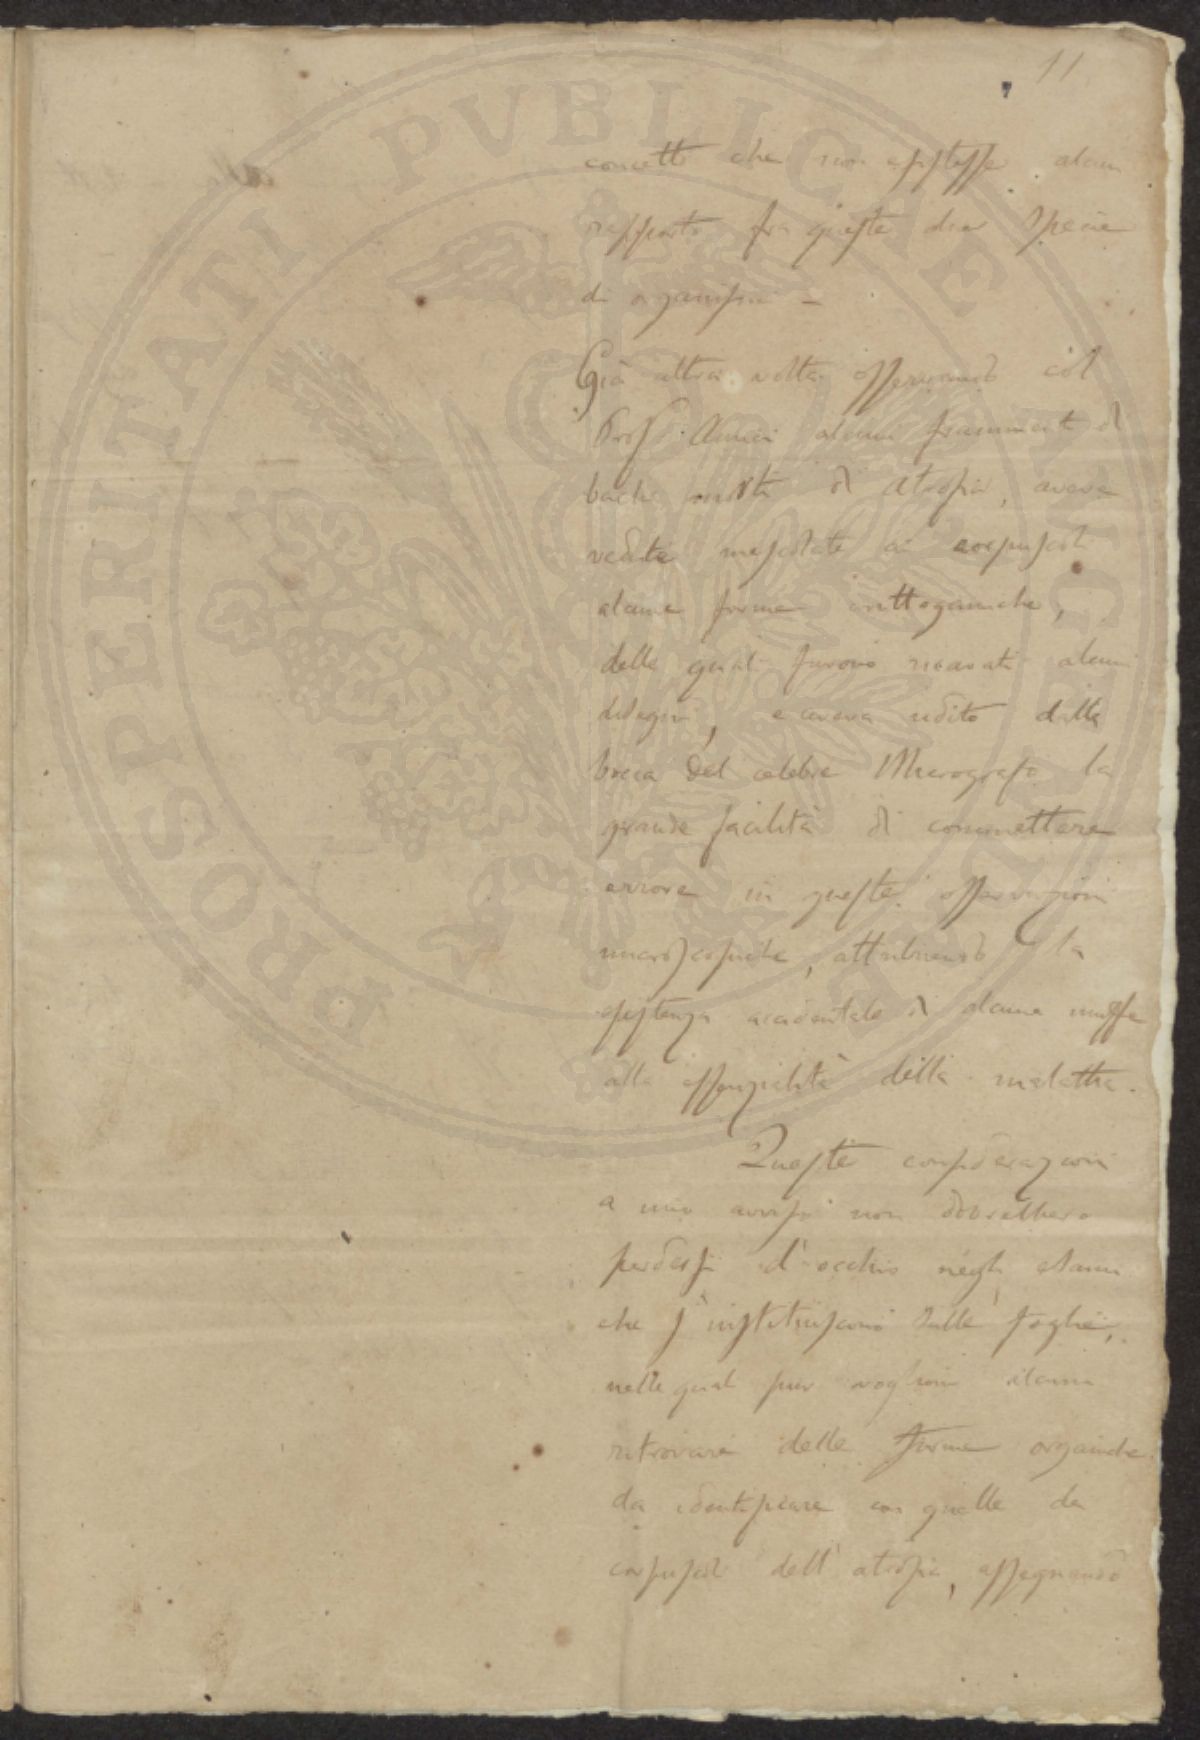 11
concetto che non esistesse alcun
rapporto fra queste due specie
di organismi –
Già altra volta osservando col
Prof. Amici alcuni frammenti di
bachi morti di atrofia, aveva
vedute mescolate ai corpuscoli
alcune forme crittogamiche,
delle quali furono ricavati alcuni
disegni, e aveva udito dalla
bocca del celebre Micrografo la
grande facilità di commettere
errore in queste osservazioni
microscopiche, attribuendo la
esistenza accidentale di alcune muffe
alla essenzialità della malattia.
Queste considerazioni
a mio avviso non dovrebbero
perdersi d'occhio negli esami
che s'instituiscono sulle foglie,
nelle quali pur vogliono alcuni
ritrovare delle forme organiche
da identificare con quelle dei
corpuscoli dell'atrofia, assegnando
PROSPERITATI PUBLICAE AUGENDAE